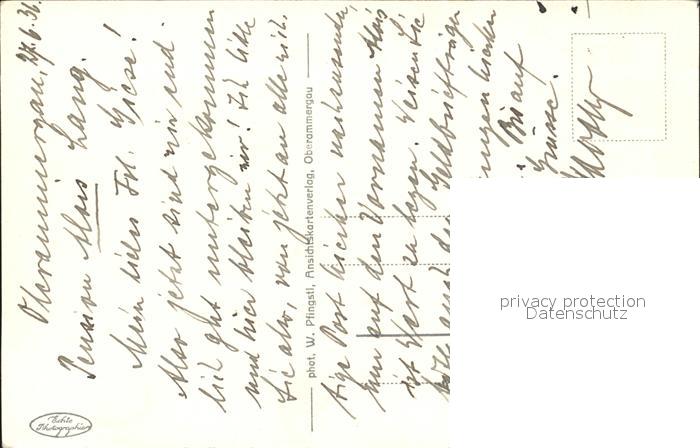 Oberammergau, 27.6.31.
Pension Alois Lang.
Mein liebes Frl. Giese!
Also jetzt sind wir end
lich gut untergekommen
und hier bleiben wir! Ich bitte
Sie also, von jetzt an alle wich.
tige Post hierher nachzusenden,
nur auf den Vornamen Alois
ist Wert zu legen.
auch
Bis auf
Grüsse.
phot. W. Pfingstl, Ansichtskartenverlag, Oberammergau
Echte
Photographie
privacy protection
Datenschutz